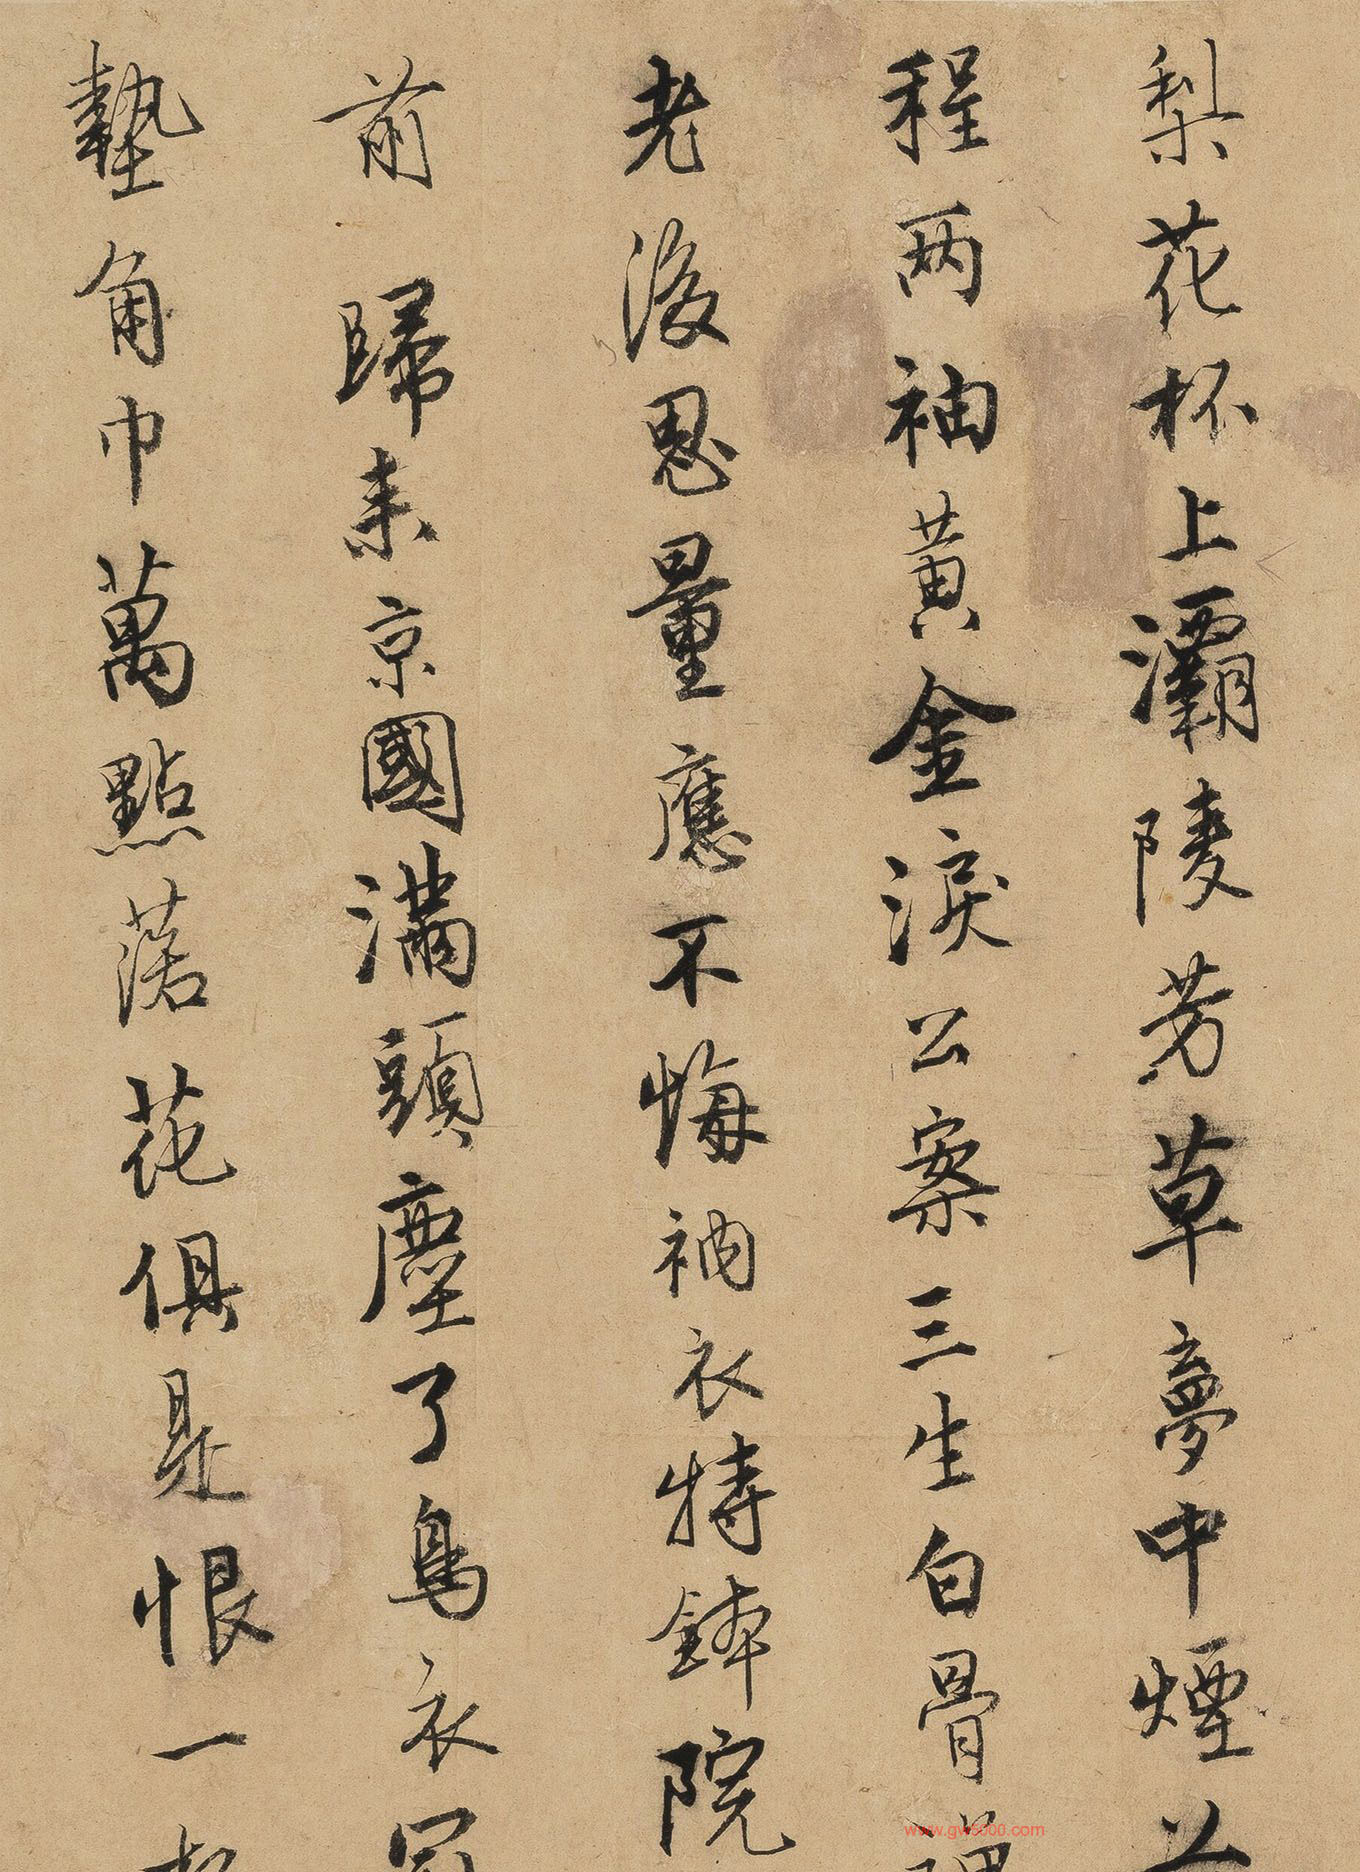 梨花杯上灞陵芳草夢中煙
程两袖黄金淚公案三生白骨禪
老後思量應不悔衲衣持鉢院
前 歸来京國滿頭塵了烏衣
墊角巾萬點落花俱是恨一
www.gw5000.com